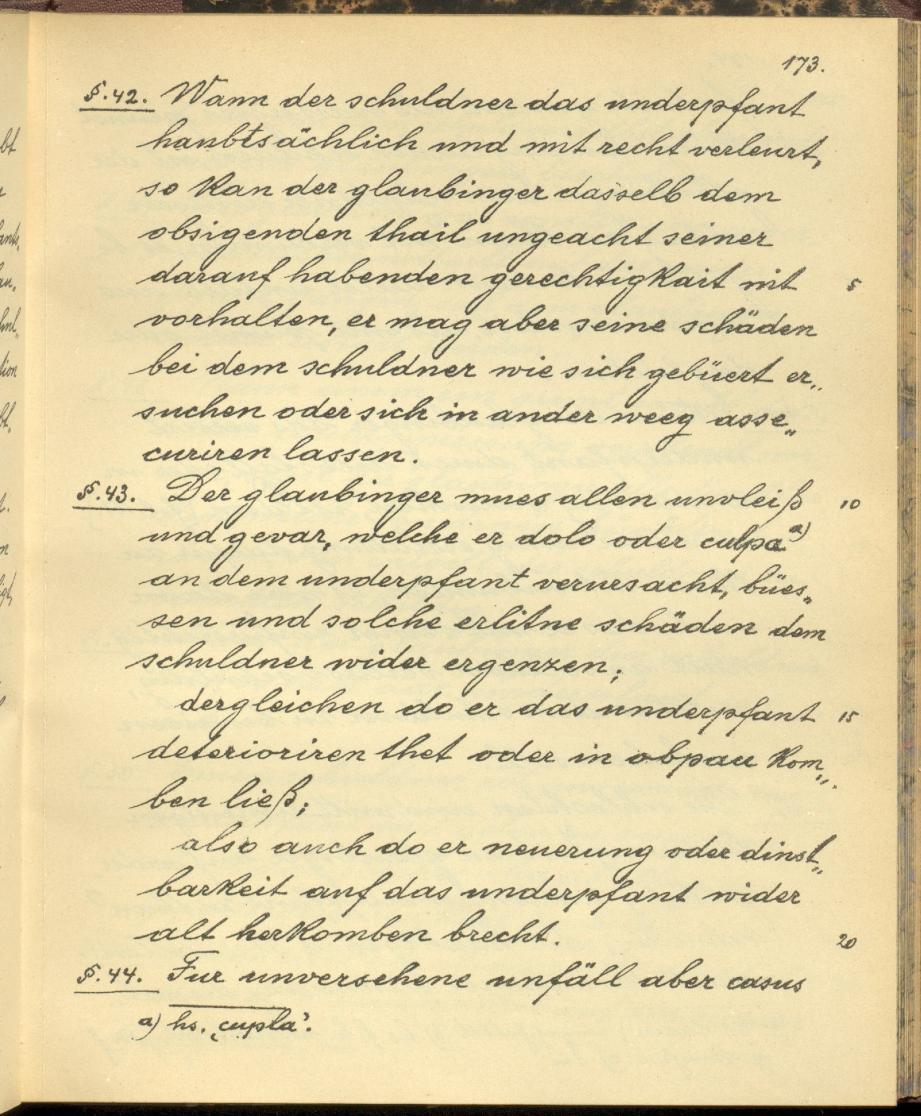 173.
§.42. Wann der schuldner das underpfant
haubtsächlich und mit recht verleurt,
so kan der glaubinger dasselb dem
obsigenden thail ungeacht seiner
darauf habenden gerechtigkait nit 5
vorhalten, er mag aber seine schäden
bei dem schuldner wie sich gebüert er„
suchen oder sich in ander weeg asse„
curiren lassen.
§.43. Der glaubinger mues allen unvleiß 10
und gevar, welche er dolo oder culpa a)
an dem underpfant verursacht, bües„
sen und solche erlitne schäden dem
schuldner wider ergenzen;
dergleichen do er das underpfant 15
deterioriren thet oder in obpau kom„
ben ließ;
also auch do er neuerung oder dinst„
barkeit auf das underpfant wider
alt herkomben brecht. 20
§.44. Fur unversehene unfäll aber casus
a) hs. ‚cupla‘.